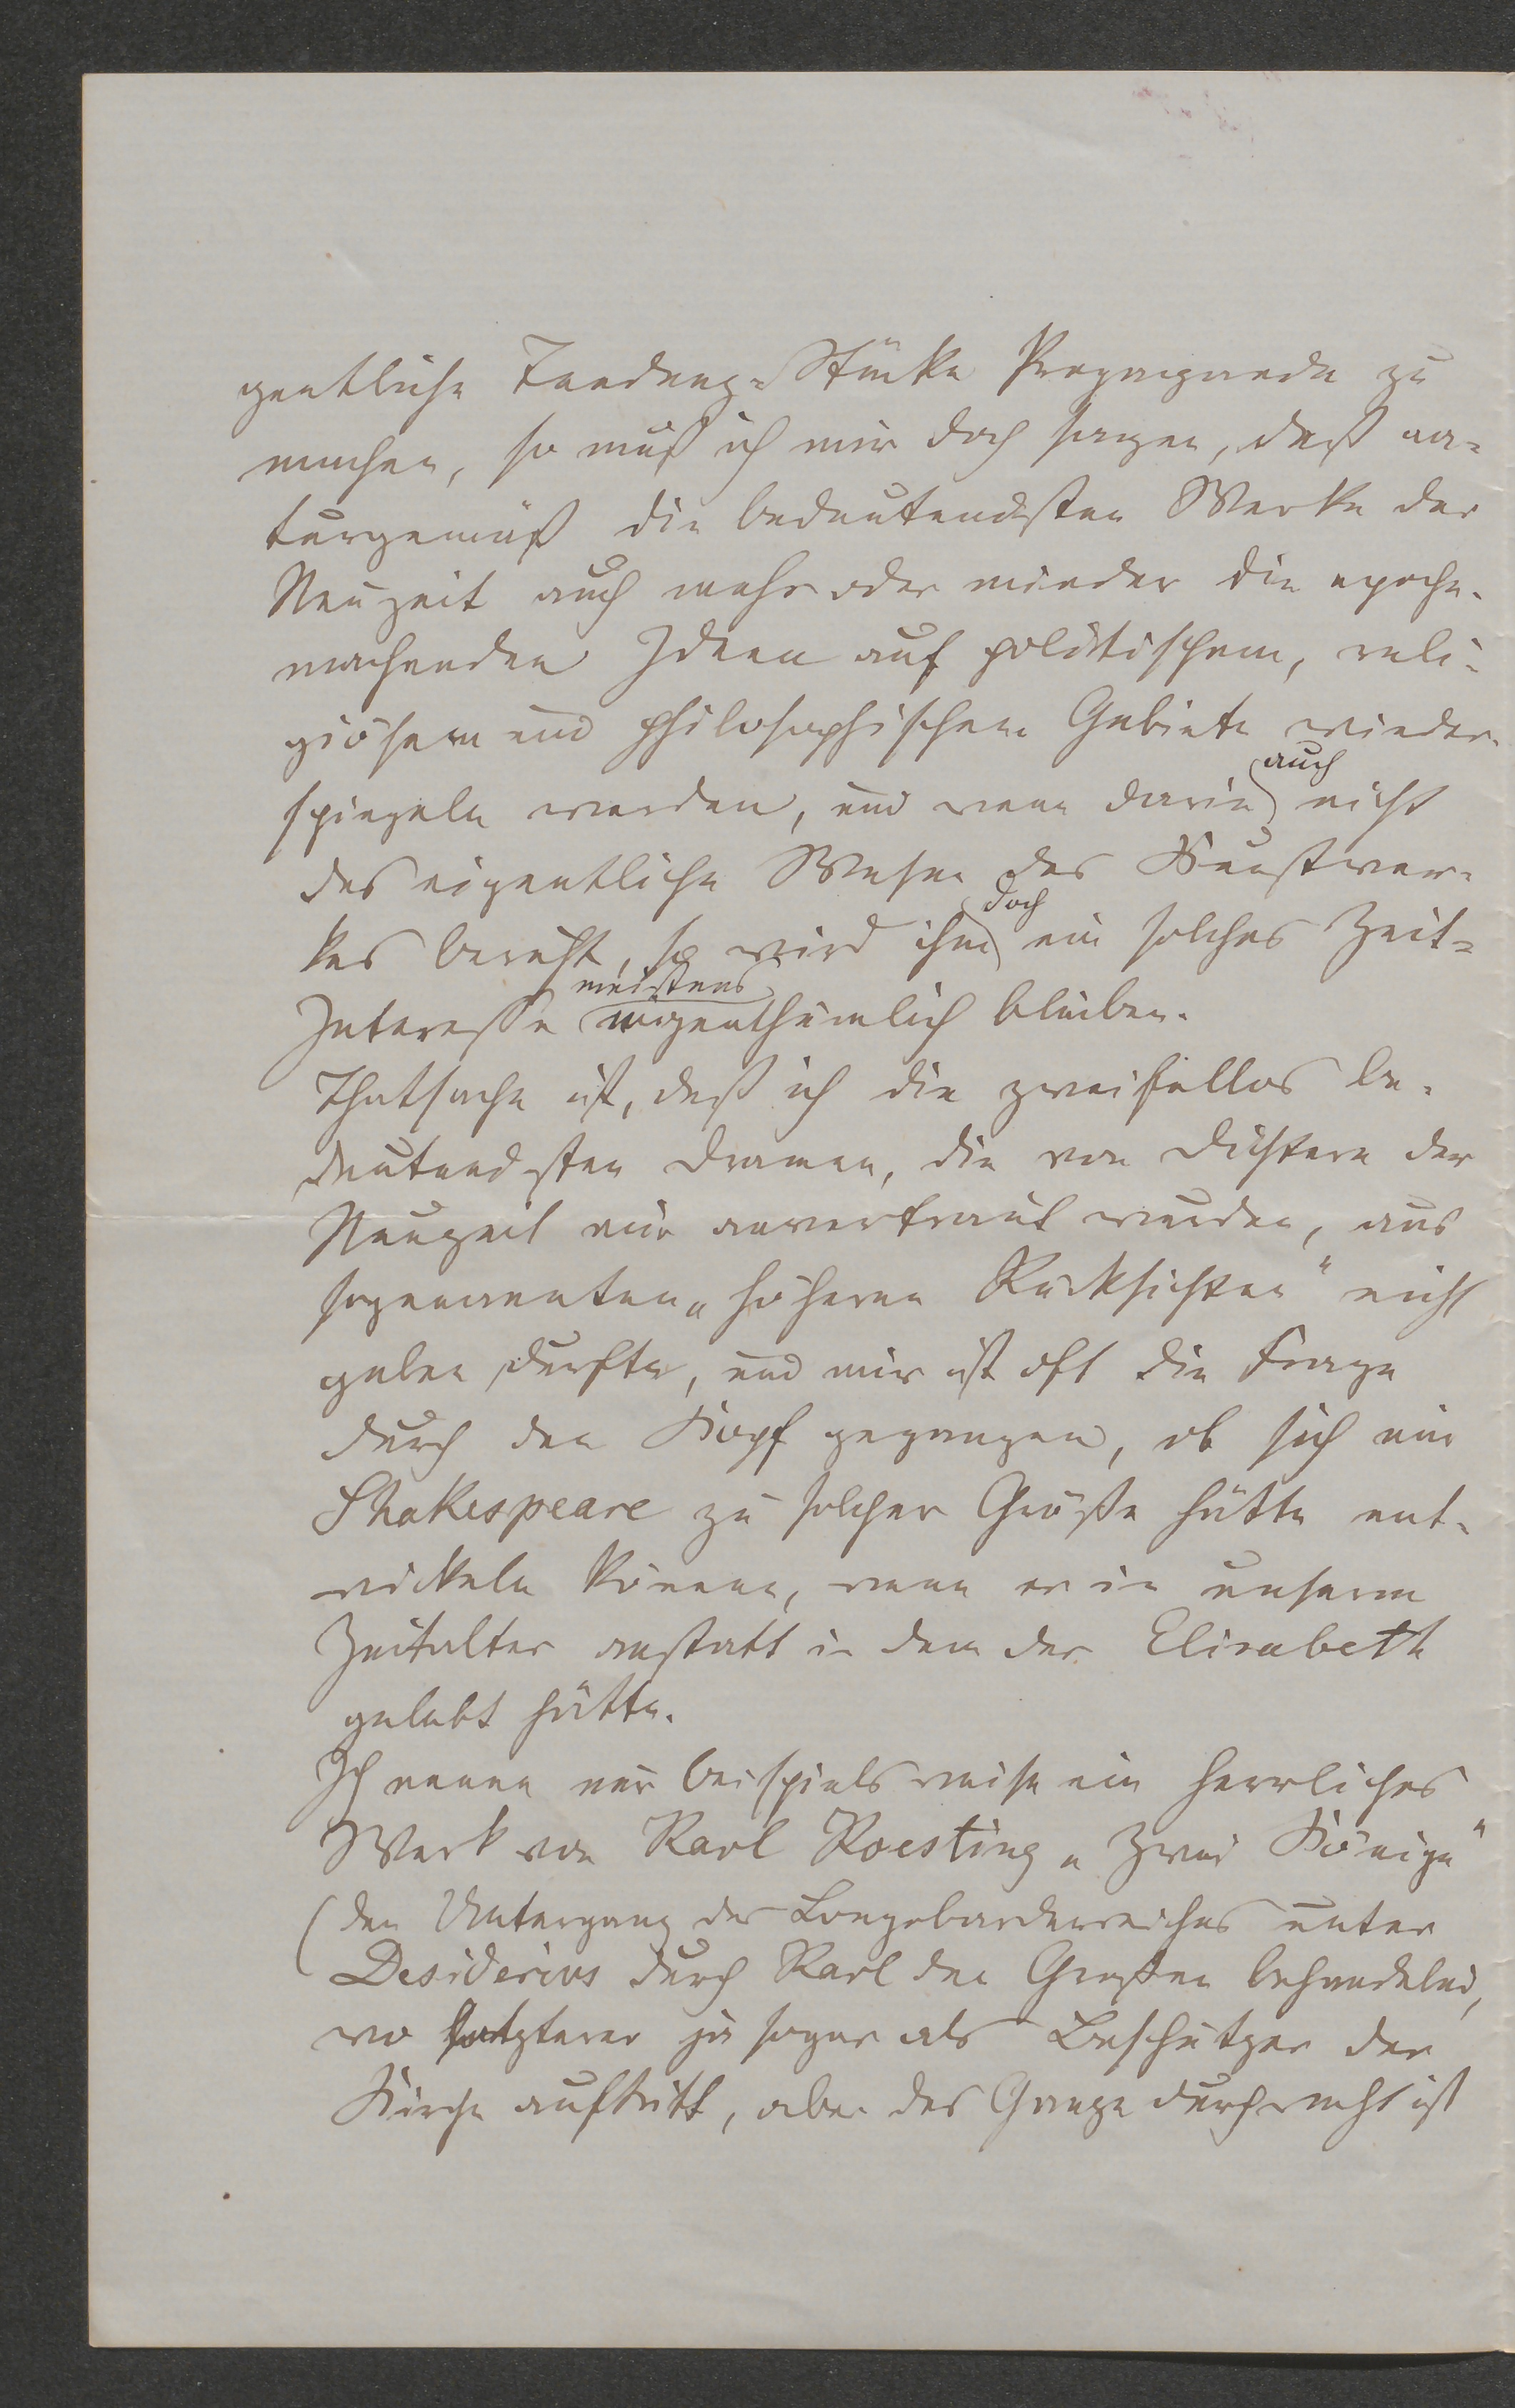 gentliche Tendenz-Stücke Propaganda zu
machen, so muß ich mir doch sagen, daß na-
turgemäß die bedeutendsten Werke der
Neuzeit auch mehr oder minder die epoche-
machenden Ideen auf politischem, reli-
giösem und philosophischem Gebiete wieder-
spiegeln werden, und wenn darin auch nicht
das eigentliche Wesen des Kunstwer-
kes beruht, so wird ihm doch ein solches Zeit-
Interesse meistens eigenthümlich bleiben.
Thatsache ist, daß ich die zweifellos be-
deutendsten Dramen, die von Dichtern der
Neuzeit mir anvertraut wurden, aus
sogenannten „höheren Rücksichten“ nicht
geben durfte, und mir ist oft die Frage
durch den Kopf gegangen, ob sich ein
Shakespeare zu solcher Größe hätte ent-
wickeln können, wenn er in unserem
Zeitalter anstatt in dem der Elisabeth
gelebt hätte.
Ich nenne nur beispielsweise ein herrliches
Werk von Karl Koesting „Zwei Könige“
(den Untergang des Longobardenreiches unter
Desiderius durch Karl den Großen behandelnd,
wo letzterer ja sogar als Beschützer der
Kirche auftritt, aber das Ganze durchweht ist